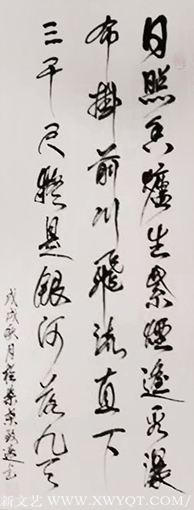 日照香爐生紫煙遙看瀑
布掛前川飛流直下
三千尺疑是銀河落九天
戊戌秋月
新文艺 · WWW.XWYQT.COM